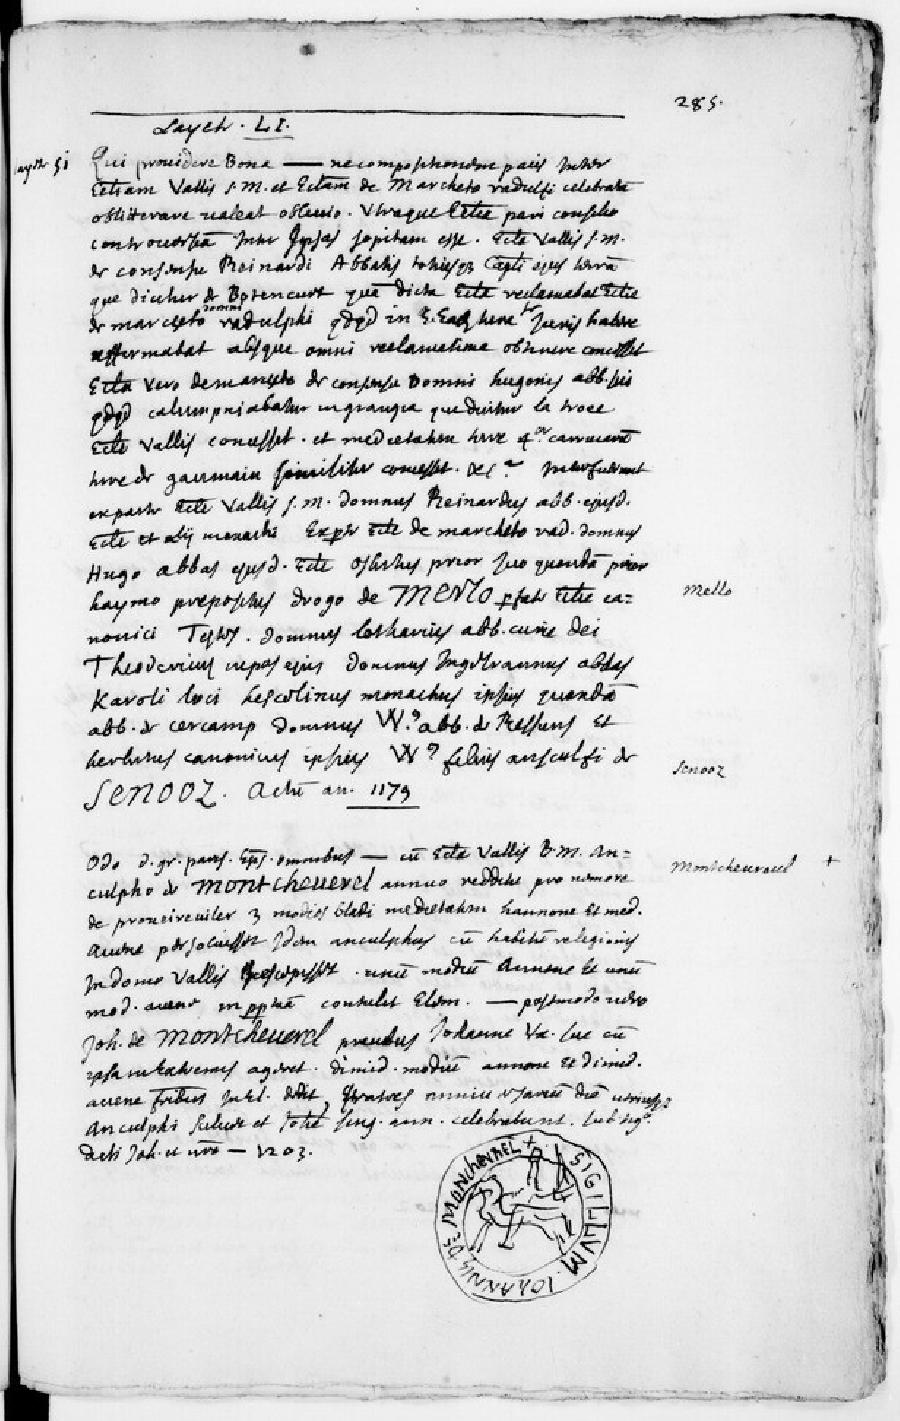 285.
Layette . LI.
Layette 51
Qui providere Bona — ne compositionem pacis Inter
Ecclam Vallis S. M. et Ecclam de Marcheto radulfi celebratã
obliterare valeat oblivio . Utraque Ecclia pari consilio
controversiã Inter Ipsas sopitam esse . Eccla Vallis S. M.
de consensu Reinardi Abbatis totiusqz Capli ejus terrã
que dicitur de Betencurt quã dicta Eccla reclamabat Ecclie
de marcheto domni radulphi qdqd in S. terre Juris habere
affirmabat absque omni reclamatione obtinere concessit
Eccla vero de marcheto de consensu Domni hugonis abb. sui
qdqd calumpniabatur in grangia que dicitur la troee
Eccle Vallis concessit . et medietatem terre 4or carrucarũ
terre de gaumain similiter concessit . Interfuerunt
ex parte Eccle Vallis S. M. domnus Reinardus abb. ejusd.
Eccle et alij monachi Ex parte Eccle de marcheto rad. domnus
Hugo abbas ejusd. Eccle Osbertus prior Ivo quondã prior
haymo prepositus drogo de MERLO pfate Ecclie ca=
nonici Testes . domnus lotharius abb. curie Dei
Theodericus nepos ejus domnus Ingelrannus abbas
Karoli loci hescelinus monachus ipsius quondã
abb. de cercamp domnus W.9 abb. de Ressuns Et
herbertus canonicus ipsius W9 filius ansculfi de
SENOOZ . Actũ an. 1179
Mello
Senooz
Odo d. gr. paris. Eps . omnibus — cũ Eccla Vallis B. M. An=
culpho de MONTcheuerel annuo redditu pro nemore
de 3 modios bladi medietatem hannone Et med.
avene persolvisset Idem anculphus cũ habitũ religionis
In domo Vallis suscepisset . unũ modiũ Annone Et unũ
mod. avene in pptuã contulit Elem. — postmodo vero
Joh. de MONTcheuerel predictus Johanne Ux. sue cũ
ipsa in extremis ageret . dimid. modiũ annone Et dimid.
avene fribus Jn El. dedit , fratres anniversariũ diẽ utriusqz
Anculphi scilicet et Johe sing. ann. celebrabunt . sub sig.
dicti Joh. — 1203.
Montcheureuil +
+ SIGILLVM . IOANNIS DE MONCHEVREL